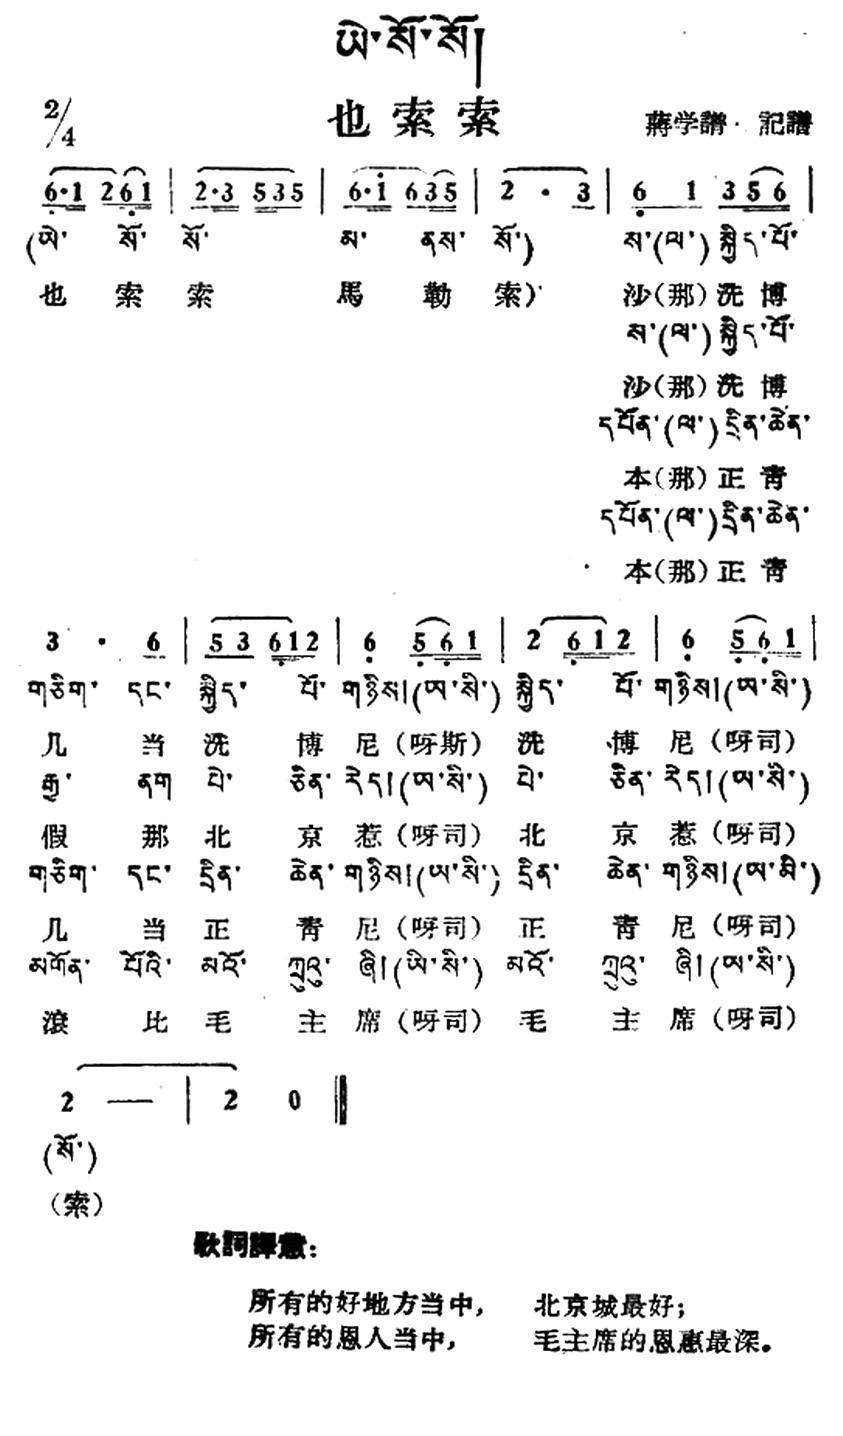 ཡེ་སོ་སོ།
2/4 也索索 蔣学譜·記譜
6·1 261 | 2·3 535 | 6·i 635 | 2 · 3 | 6 1 356 |
(ཨེ་ སོ་ སོ་ མ་ ནས་ སོ་) ས་(ལ་)སྐྱིད་པོ་
也 索 索 馬 勒 索) 沙(那)洗博
ས་(ལ་)སྐྱིད་པོ་
沙(那)洗博
དཔོན་(ལ་)དྲིན་ཆེན་
本(那)正青
དཔོན་(ལ་)དྲིན་ཆེན་
本(那)正青
3 · 6 | 53 612 | 6 561 | 2 612 | 6 561 |
གཅིག་ དང་ སྐྱིད་ པོ་ གཉིས།(ཨ་སི་) སྐྱིད་ པོ་ གཉིས།(ཨ་སི་)
几 当 洗 博 尼(呀斯) 洗 博 尼(呀司)
རྒྱ་ ནག པེ་ ཅིན་ རེད།(ཨ་སི་) པེ་ ཅིན་ རེད།(ཨ་སི་)
假 那 北 京 惹(呀司) 北 京 惹(呀司)
གཅིག་ དང་ དྲིན་ ཆེན་ གཉིས།(ཨ་སི་) དྲིན་ ཆེན་ གཉིས།(ཨ་སི་)
几 当 正 青 尼(呀司) 正 青 尼(呀司)
མགོན་ པོའི་ མའོ་ ཀྲུའུ་ ཞི།(ཨི་སི་) མའོ་ ཀྲུའུ་ ཞི།(ཨ་སི་)
滾 比 毛 主 席(呀司) 毛 主 席(呀司)
2 — | 2 0 ‖
(སོ་)
(索)
歌詞譯意:
所有的好地方当中, 北京城最好;
所有的恩人当中, 毛主席的恩惠最深。